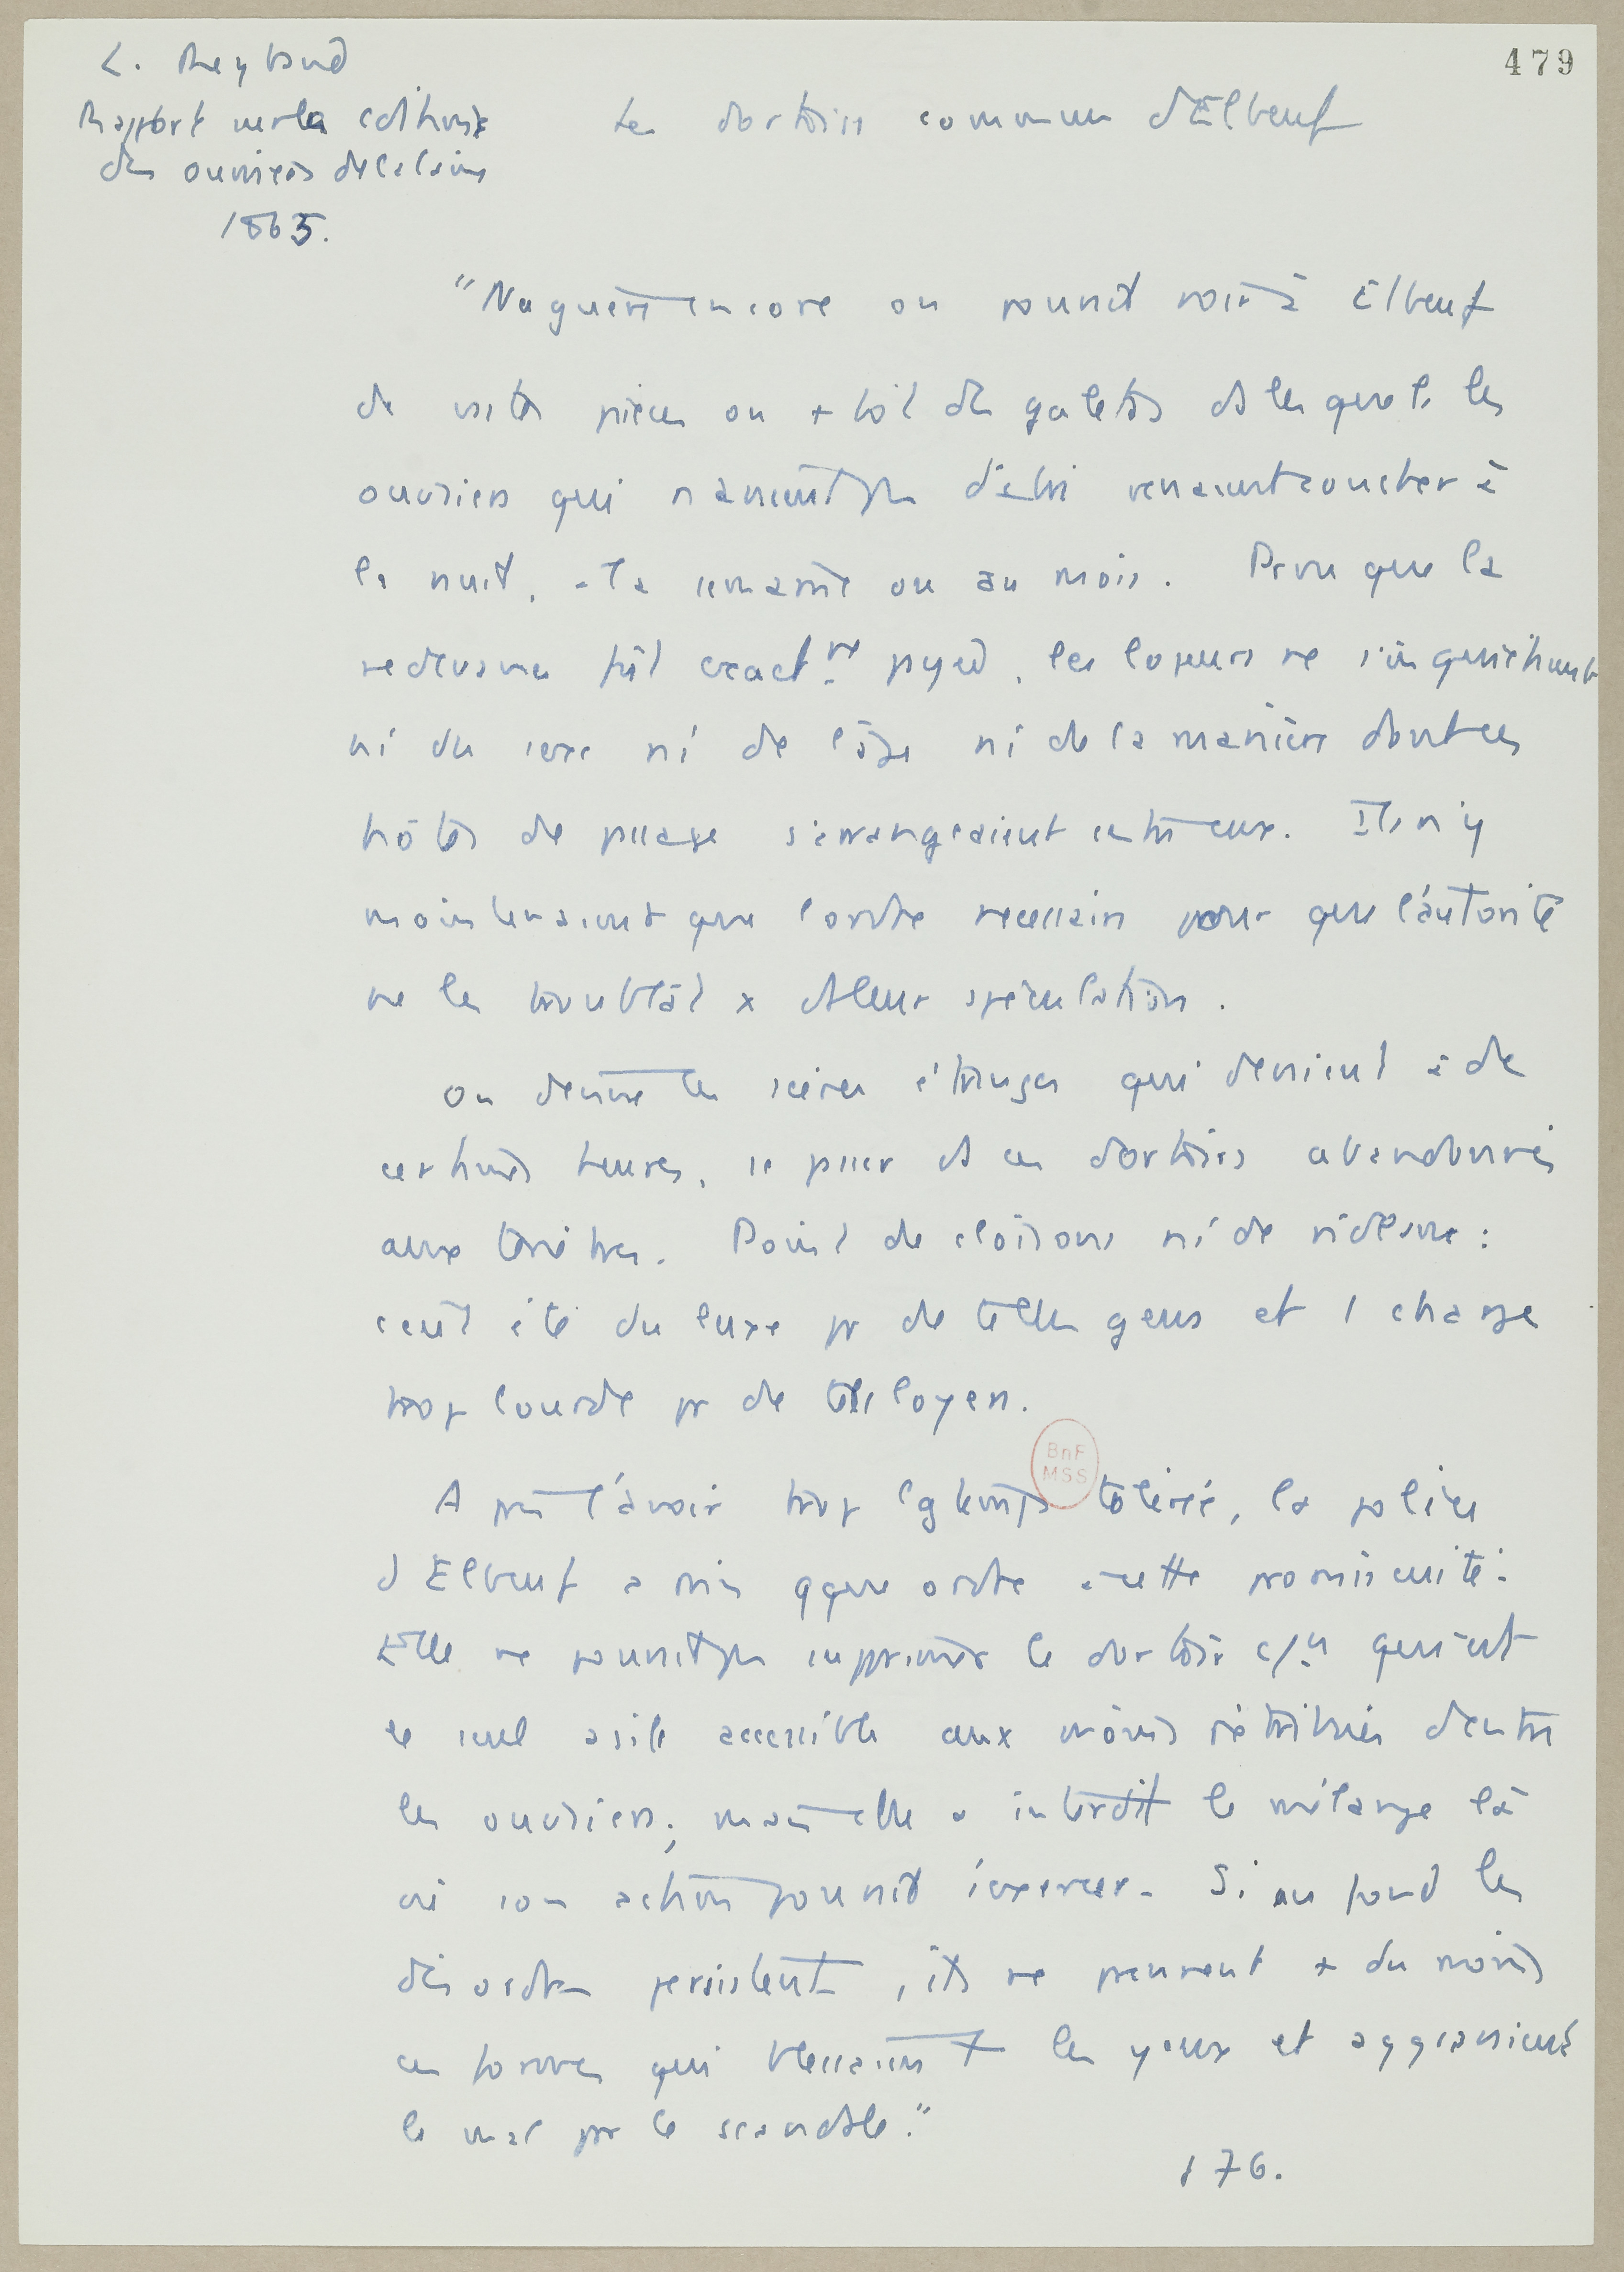 479
L. Reybaud
Rapport sur la condition
des ouvriers de la laine
1865.
Les dortoirs communs d'Elbeuf
"Naguère encore on pouvait voir à Elbeuf
de vastes pièces ou + tôt des galetas ds lesquels les
ouvriers qui n'avaient pas d'abri venaient coucher à
la nuit, à la semaine ou au mois. Pourvu que la
redevance fût exactmt payée, les logeurs ne s'inquiétaient
ni du sexe ni de l'âge ni de la manière dont ces
hôtes de passage s'arrangeaient entre eux. Ils n'y
maintenaient que l'ordre nécessaire pour que l'autorité
ne les troublât x ds leur spéculation.
On devine les scènes étranges qui devaient à de
certaines heures, se passer ds ces dortoirs abandonnés
aux ténèbres. Point de cloisons ni de rideaux :
c'eût été du luxe pr de telles gens et 1 charge
trop lourde pr de tels loyers.
Après l'avoir trop lgtemps tolérée, la police
d'Elbeuf a mis qque ordre à cette promiscuité.
Elle ne pouvait pas supprimer le dortoir qui est
le seul asile accessible aux moins rétribués d'entre
les ouvriers ; mais elle a interdit le mélange là
où son action pouvait s'exercer. Si au fond les
désordres persistent, ils ne prennent + du moins
ces formes qui blessaient les yeux et aggravaient
le mal par le scandale."
176.
BnF
MSS